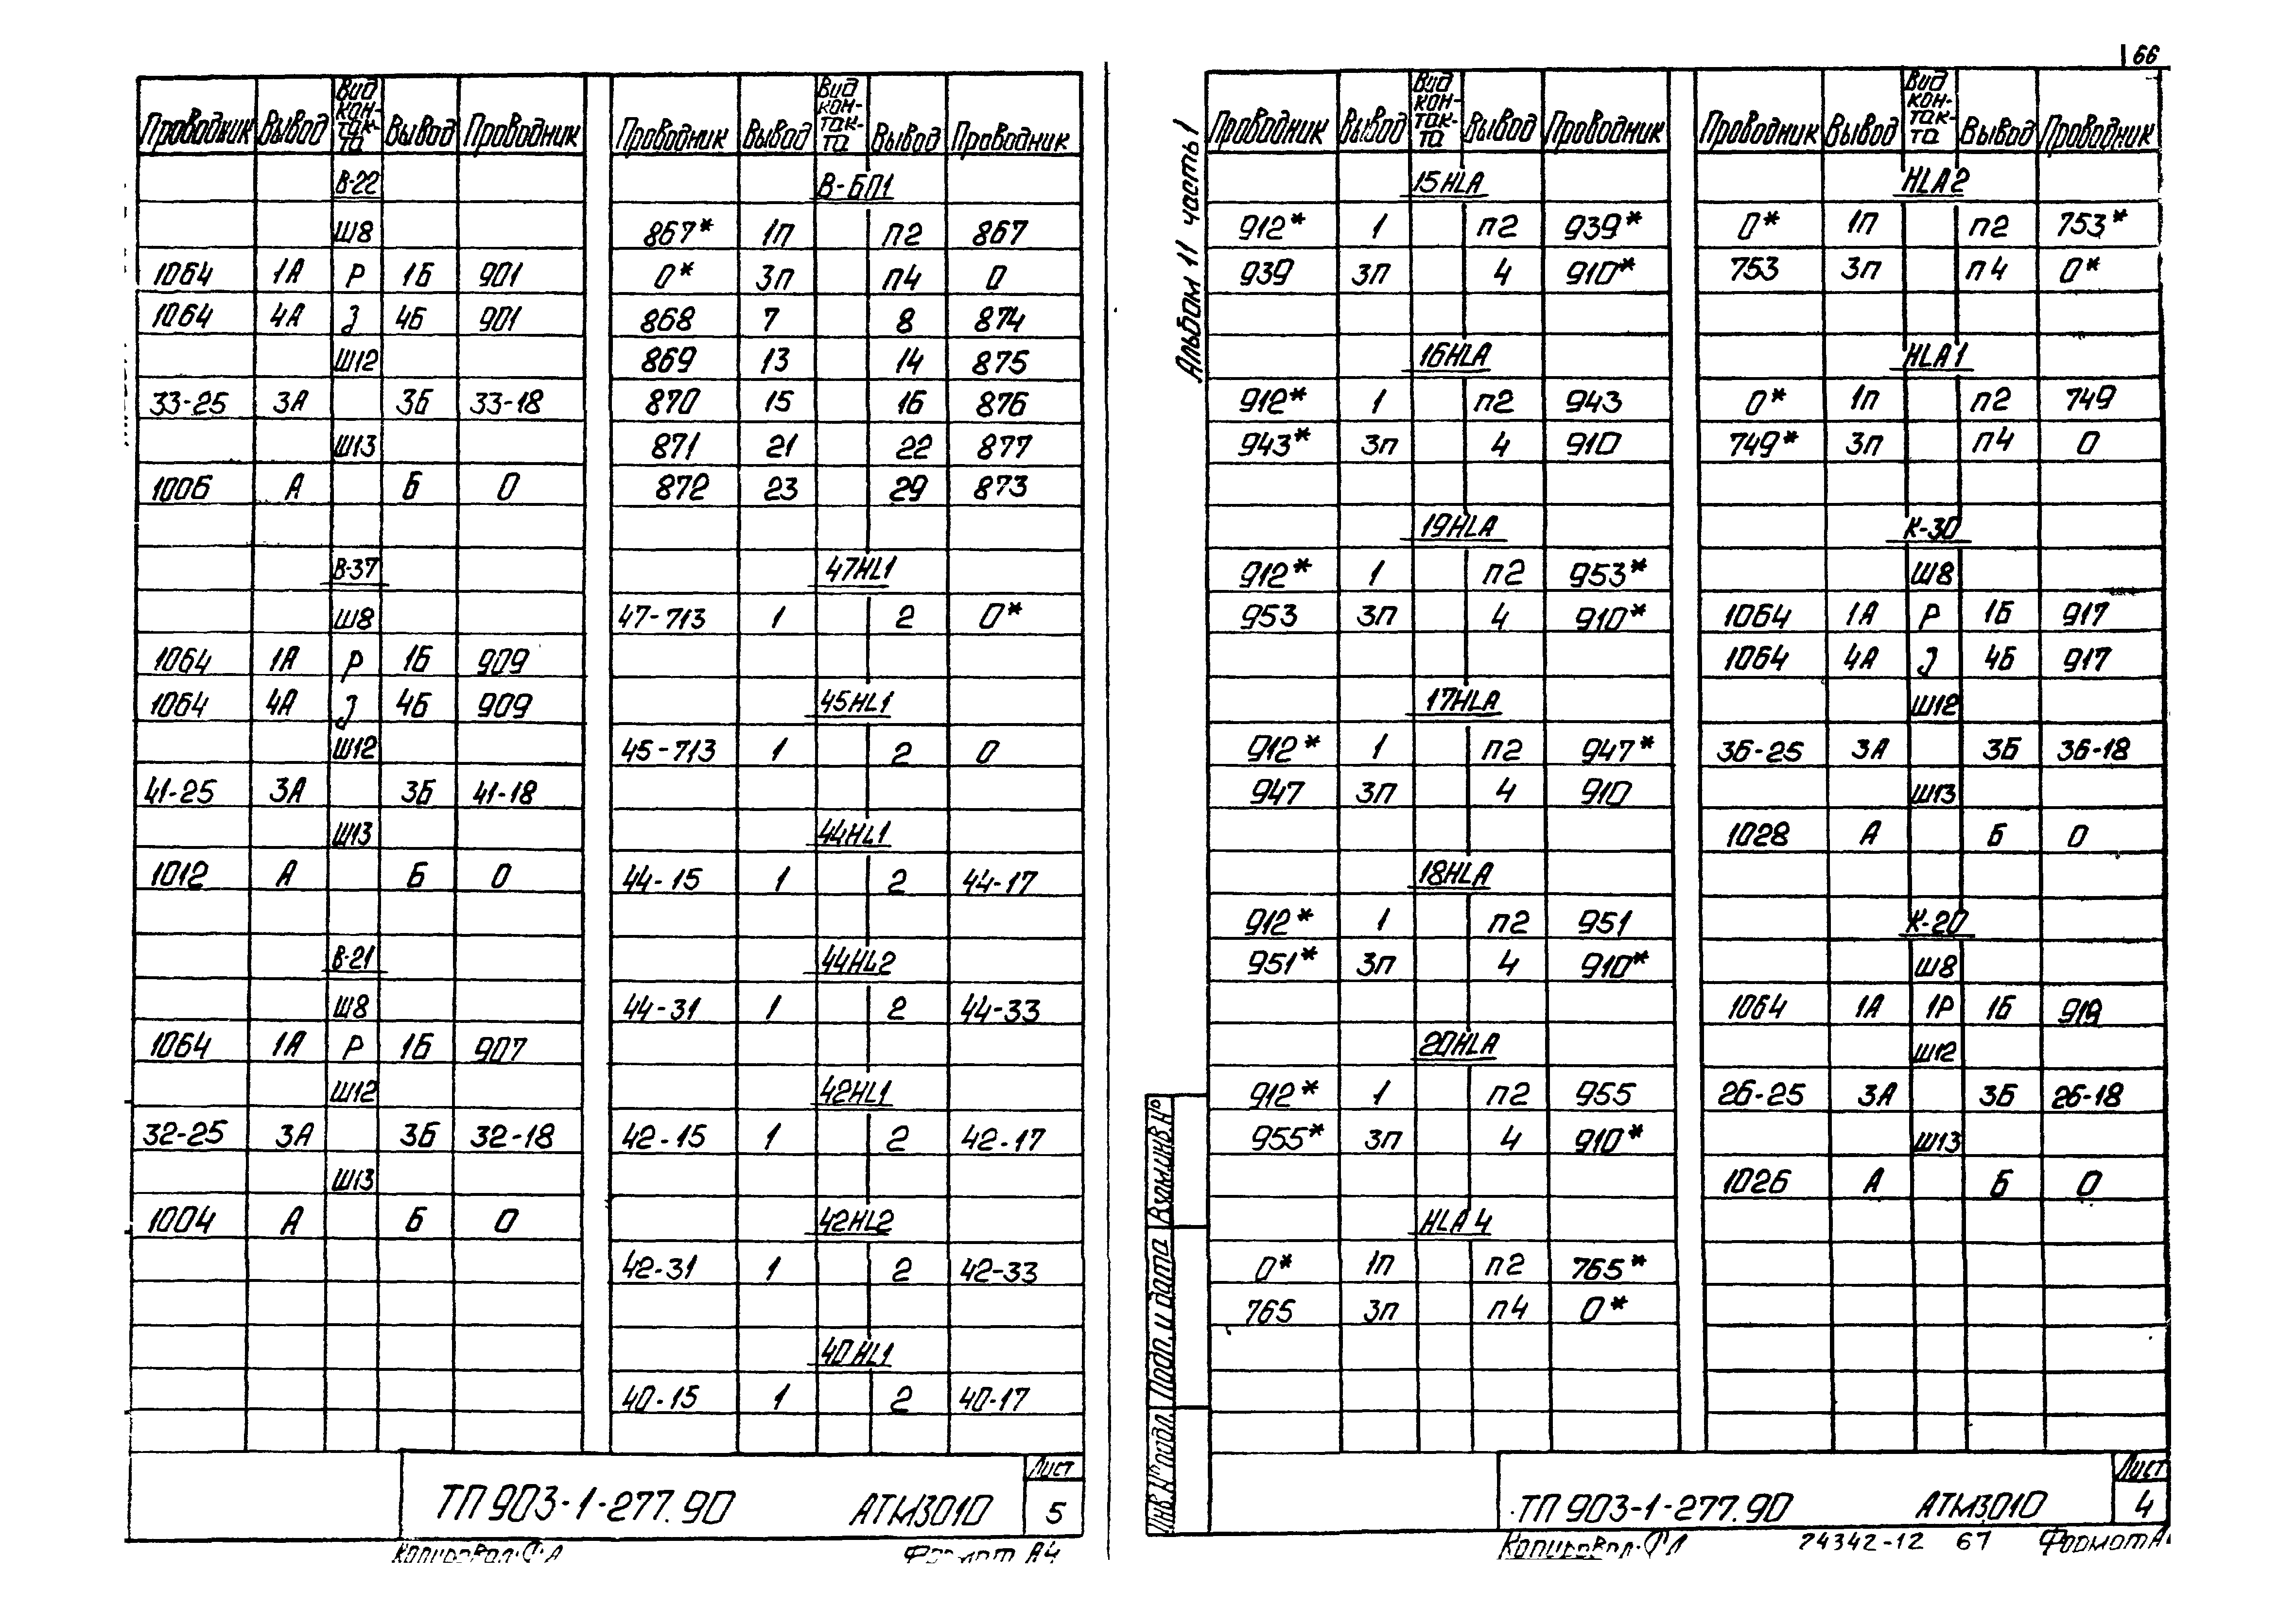 66
Проводник Вывод Вид кон-так-та Вывод Проводник
В-22
Ш8
1064 1А Р 1Б 901
1064 4А З 4Б 901
Ш12
33-25 3А 3Б 33-18
Ш13
1006 А Б 0
В-37
Ш8
1064 1А Р 1Б 909
1064 4А З 4Б 909
Ш12
41-25 3А 3Б 41-18
Ш13
1012 А Б 0
В-21
Ш8
1064 1А Р 1Б 907
Ш12
32-25 3А 3Б 32-18
Ш13
1004 А Б 0
Проводник Вывод Вид кон-так-та Вывод Проводник
В-БП1
867* 1п п2 867
0* 3п п4 0
868 7 8 874
869 13 14 875
870 15 16 876
871 21 22 877
872 23 29 873
47HL1
47-713 1 2 0*
45HL1
45-713 1 2 0
44HL1
44-15 1 2 44-17
44HL2
44-31 1 2 44-33
42HL1
42-15 1 2 42-17
42HL2
42-31 1 2 42-33
40HL1
40-15 1 2 40-17
ТП 903-1-277.90 АТМ3010 Лист 5
Копировал Формат А4
Альбом 11 часть 1
Проводник Вывод Вид кон-так-та Вывод Проводник
15HLA
912* 1 п2 939*
939 3п 4 910*
16HLA
912* 1 п2 943
943* 3п 4 910
19HLA
912* 1 п2 953*
953 3п 4 910*
17HLA
912* 1 п2 947*
947 3п 4 910
18HLA
912* 1 п2 951
951* 3п 4 910*
20HLA
912* 1 п2 955
955* 3п 4 910*
HLA4
0* 1п п2 765*
765 3п п4 0*
Проводник Вывод Вид кон-так-та Вывод Проводник
HLA2
0* 1п п2 753*
753 3п п4 0*
HLA1
0* 1п п2 749
749* 3п п4 0
К-30
Ш8
1064 1А Р 1Б 917
1064 4А З 4Б 917
Ш12
36-25 3А 3Б 36-18
Ш13
1028 А Б 0
К-20
Ш8
1064 1А 1Р 1Б 919
Ш12
26-25 3А 3Б 26-18
Ш13
1026 А Б 0
Взам.инв.№
Подп. и дата
Инв.№ подл.
ТП 903-1-277.90 АТМ3010 Лист 4
Копировал 24342-12 67 Формат А